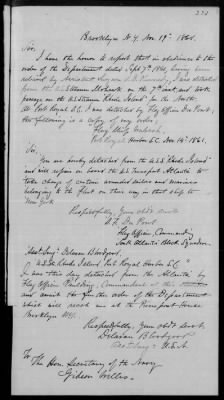 Brooklyn N.Y. Nov 19th 1861.
Sir,
I have the honor to report that in obedience to the
order of the Department dated Sept 7th 1861, having been
relieved by Assistant Surgeon, I was detached
from the U.S. Steamer on the 7th inst, and took
passage on the U.S. Steamer Rhode Island for the North.
At Port Royal S.C. I was detached by Flag Officer Du Pont,
the following is a copy of my orders:
Flag Ship Wabash,
Port Royal Harbor S.C. Nov 14th 1861.
Sir,
You are hereby detached from the U.S.S. Rhode Island
and will repair on board the U.S. Transport Atlantic to
take charge of certain wounded sailors and marines
belonging to the fleet on their way in that ship to
New York
Respectfully Your obdt Servt
S. F. Du Pont
Flag Officer Commanding
South Atlantic Block. Squadron
Asst. Surg. Delavan Bloodgood,
U.S.S. Rhode Island, Port Royal Harbor S.C.
I was this day detached from the Atlantic by
Flag Officer Paulding, Commandant of this
and await the further order of the Department
which will reach me at the Pierrepont House
Brooklyn N.Y.
Respectfully, Your obdt Servt
Delavan Bloodgood
Asst Surg. U.S.N.
To
The Hon. Secretary of the Navy
Gideon Welles.